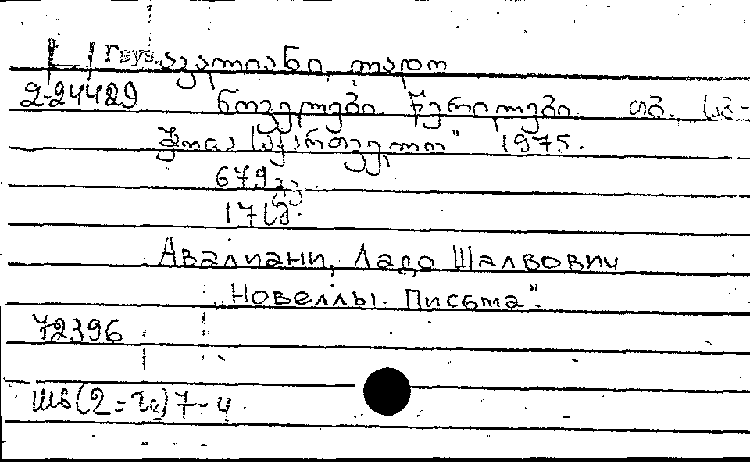 Груз. ავალიანი, ლადო
2-24429 ნოველები. წერილები. თბ. საბ-
ჭოთა საქართველო" 1975.
679 გვ
17 სმ.
Авалиани, Ладо Шалвович
"Новеллы. Письма".
72396
Ш6(2=Гр)7-4